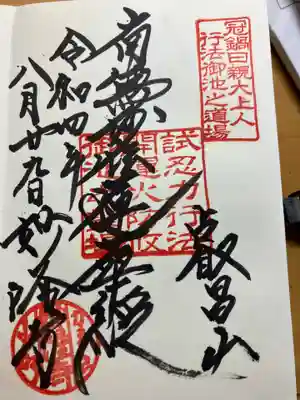 冠鍋日親大上人
行法御池之道場
叡昌山
試忍力行法
南無妙法蓮華経
令和四年
八月廿 日 妙隆寺